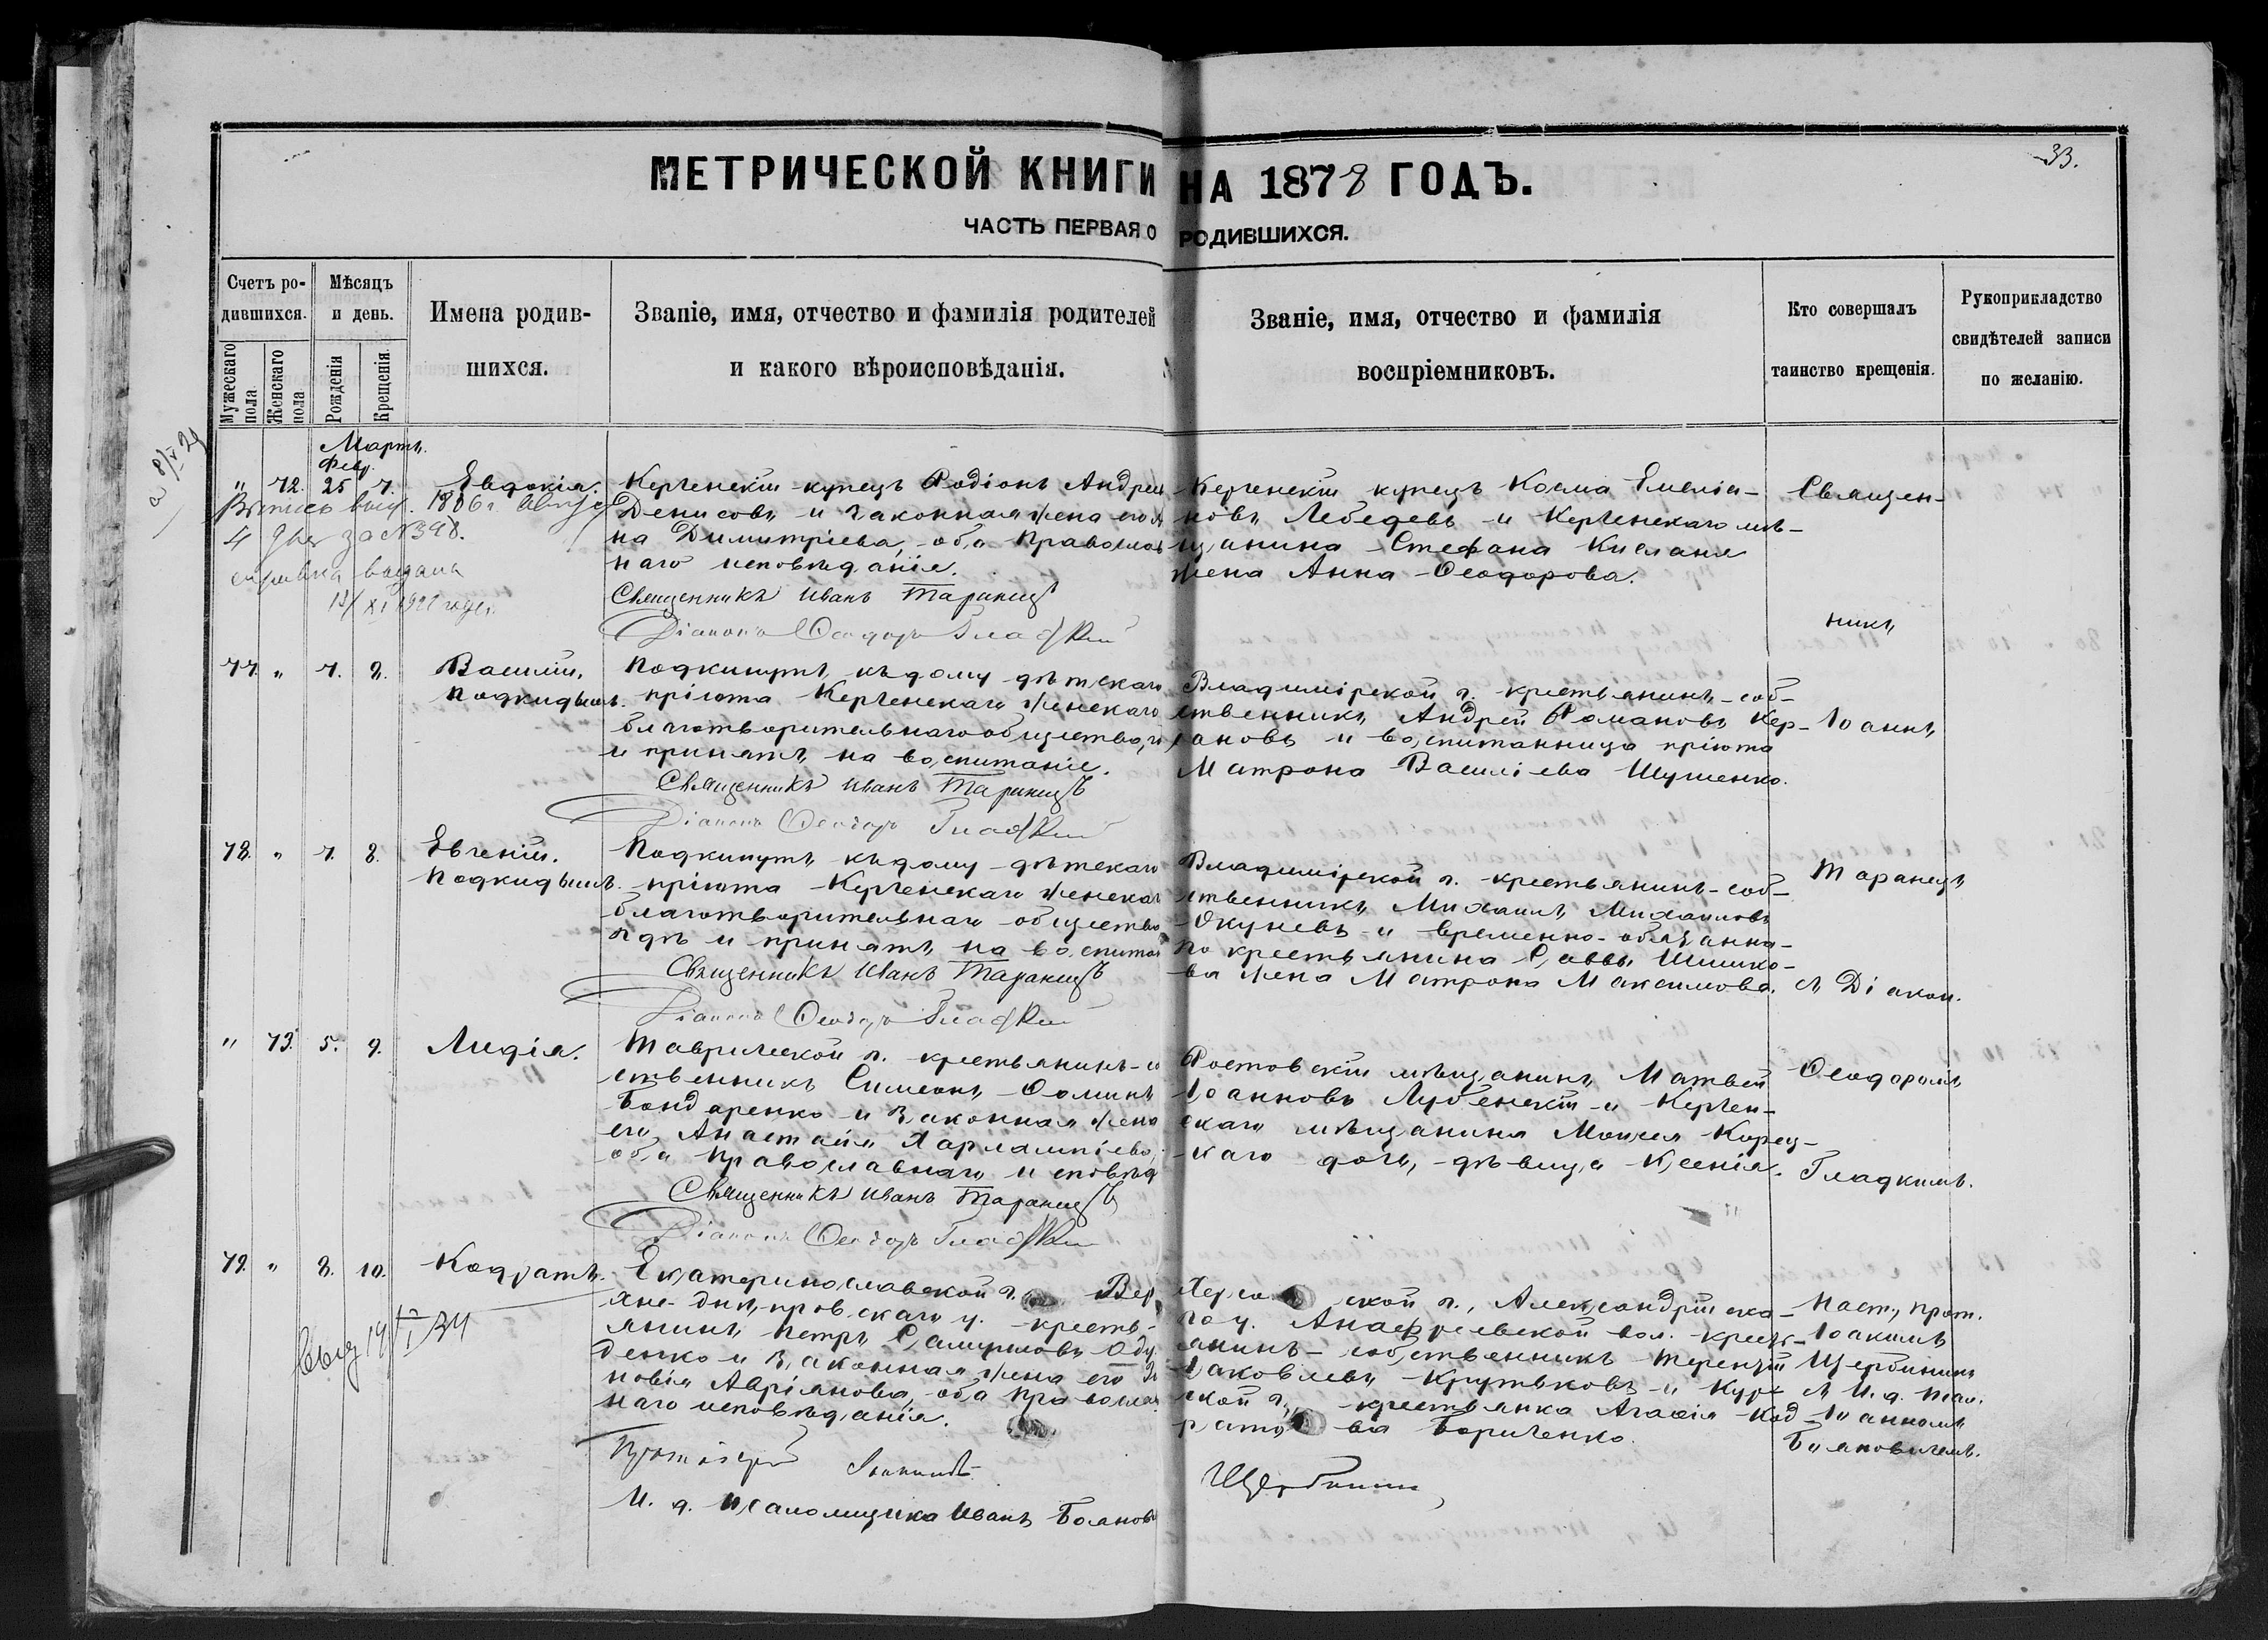 33.
МЕТРИЧЕСКОЙ КНИГИ НА 1878 ГОДЪ.
ЧАСТЬ ПЕРВАЯ О РОДИВШИХСЯ.
Счетъ ро-
дившихся.
Мужескаго пола
Женскаго пола
Мѣсяцъ
и день.
Рожденія
Крещенія.
Имена родив-
шихся.
Званіе, имя, отчество и фамилія родителей
и какого вѣроисповѣданія.
Званіе, имя, отчество и фамилія
воспріемниковъ.
Кто совершалъ
таинство крещенія.
Рукоприкладство
свидѣтелей записи
по желанію.
Мартъ.
Февр.
" 72. 25 7. Евдокія.
4 за №398.
справка выдана
Керченскій купецъ Родіонъ Андреев
Денисовъ и законная жена его
на Димитріева, оба православ
наго исповѣданія.
Священникъ Иванъ Таранецъ
Діаконъ Ѳеодоръ Гладкій
Керченскій купецъ Косма Емеліа-
новъ Лебедевъ и Керченскаго мѣ-
щанина Стефана
жена Анна Ѳеодорова.
77. " 7. 8. Василій.
Подкидышъ.
Подкинутъ къ дому дѣтскаго
пріюта Керченскаго женскаго
благотворительнаго общества,
и принятъ на воспитаніе.
Священникъ Иванъ Таранецъ
Діаконъ Ѳеодоръ Гладкій
Владимірской г. крестьянинъ-соб-
ственникъ Андрей Романовъ Кер-
сановъ и воспитанница пріюта
Матрона Василіева Шушенко.
78. " 7. 8. Евгеній.
Подкидышъ.
Подкинутъ къ дому дѣтскаго
пріюта Керченскаго женскаго
благотворительнаго общества
гдѣ и принятъ на воспитан
Священникъ Иванъ Таранецъ
Діаконъ Ѳеодоръ Гладкій
Владимірской г. крестьянинъ-соб-
ственникъ Михаилъ Михаиловъ
Окуневъ и временно-обязанна-
го крестьянина Саввы Шишко-
ва жена Матрона Максимова.
" 73. 5. 9. Лидія.
Таврической г. крестьянинъ-со
ственникъ Симеонъ Ѳоминъ
Бондаренко и законная жена
его Анастасія Харлампіева,
оба православнаго исповѣд
Священникъ Иванъ Таранецъ
Діаконъ Ѳеодоръ Гладкій
Ростовскій мѣщанинъ Матвей
Іоанновъ Лубенскій и Керчен-
скаго мѣщанина Моисея Корец-
каго дочь, дѣвица Ксенія.
Священ-
никъ
Іоаннъ
Таранецъ
съ Діакон.
Ѳеодоромъ
Гладкимъ.
79. " 8. 10. Кодратъ.
Екатеринославской г., Вер
хне-днѣпровскаго у. кресть-
янинъ Петръ Самуиловъ
денко и законная жена его
новія Авріянова, оба православ
наго исповѣданія.
Протоіерей Іоакимъ Щербининъ
И. д. Псаломщика Иванъ Боянов
Херсонской г., Александрійска-
го у. вол. кресть-
янинъ-собственникъ Терентій
Іаковлевъ Крутьковъ и Кур-
ской г., крестьянка Агаѳія Код-
ратова Бориченко.
Наст. прот.
Іоакимъ
Щербининъ
съ И. д. Псал.
Іоанномъ
Бояновичемъ.